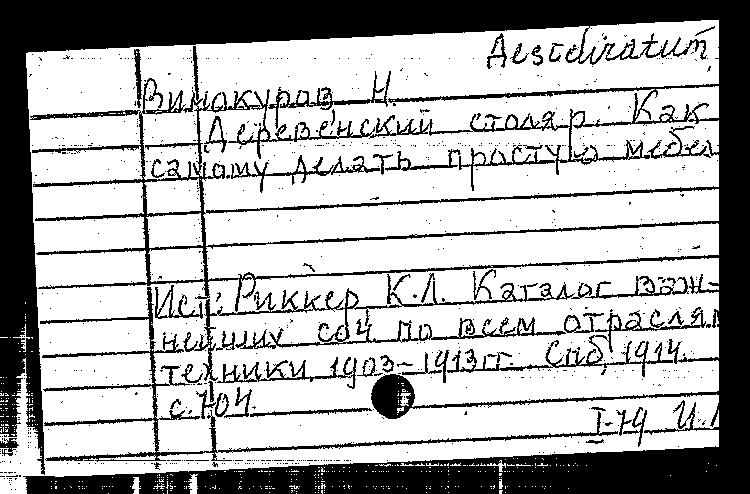 Desediratum
Винокуров, Н.
Деревенский столяр. Как
самому делать простую мебел
Ист.: Риккер К.Л. Каталог важ-
нейших соч. по всем отраслям
техники, 1903-1913 гг. Спб, 1914.
с. 104.
I-79 И.Л